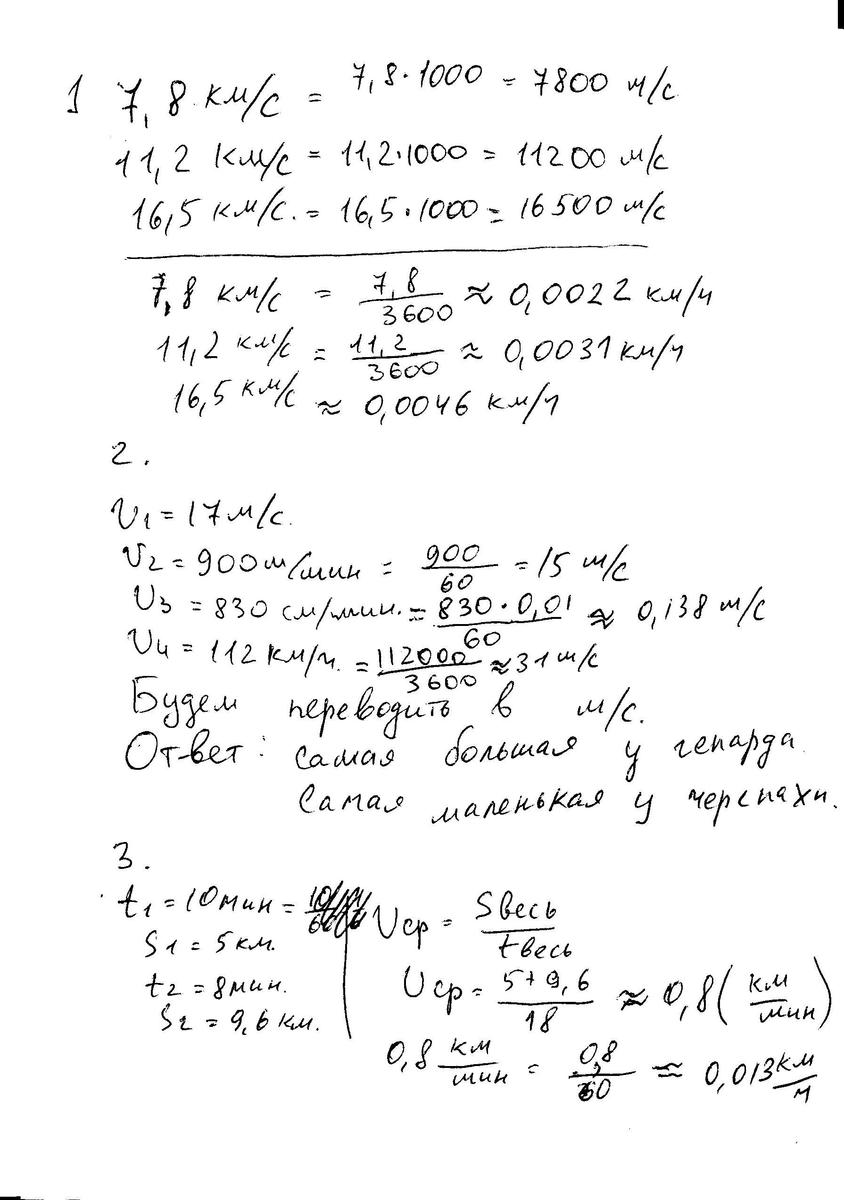 1 7,8 км/с = 7,8·1000 = 7800 м/с
11,2 км/с = 11,2·1000 = 11200 м/с
16,5 км/с. = 16,5·1000 = 16500 м/с
7,8 км/с = 7,8/3600 ≈ 0,0022 км/ч
11,2 км/с = 11,2/3600 ≈ 0,0031 км/ч
16,5 км/с ≈ 0,0046 км/ч
2.
υ1 = 17 м/с.
υ2 = 900 м/мин = 900/60 = 15 м/с
υ3 = 830 см/мин. = 830·0,01/60 ≈ 0,138 м/с
υ4 = 112 км/ч. = 112000/3600 ≈ 31 м/с
Будем переводить в м/с.
Ответ: самая большая у гепарда.
Самая маленькая у черепахи.
3.
t1 = 10 мин =
S1 = 5 км.
t2 = 8 мин.
S2 = 9,6 км.
υср = Sвесь/tвесь
υср = 5+9,6/18 ≈ 0,8 (км/мин)
0,8 км/мин = 0,8/60 ≈ 0,013 км/ч